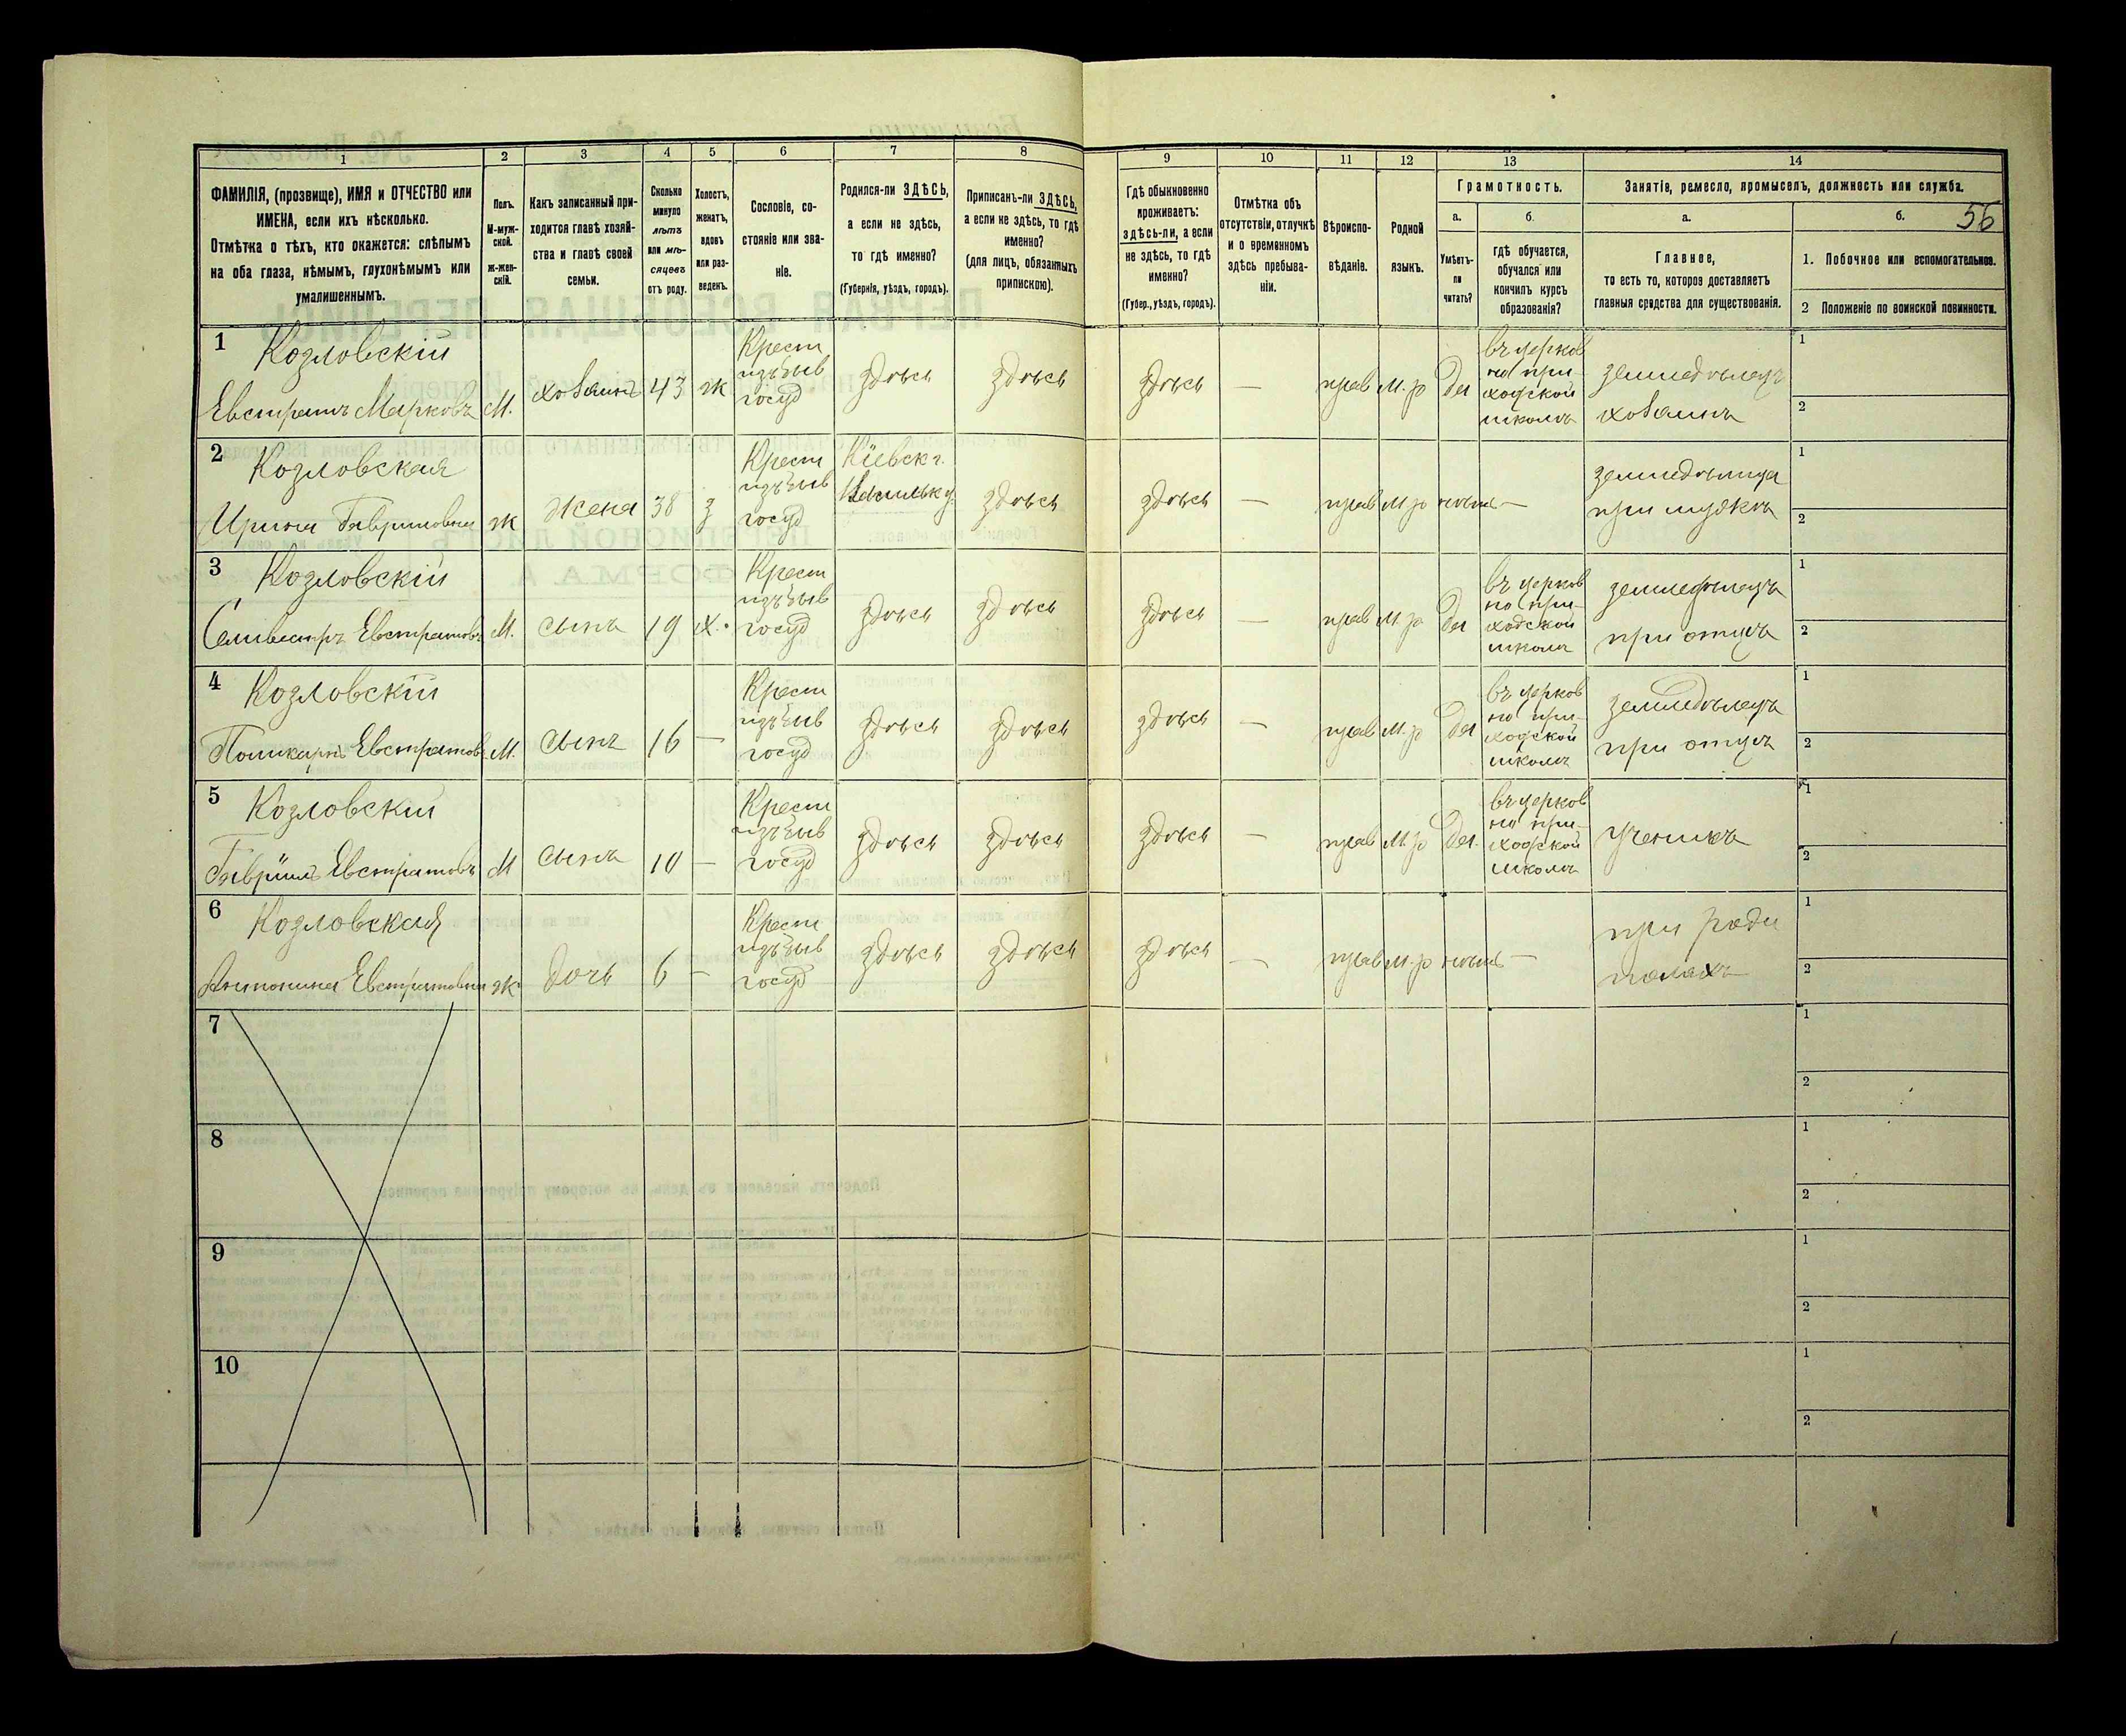 1 2 3 4 5 6 7 8 9 10 11 12 13 14
56
ФАМИЛІЯ, (прозвище), ИМЯ и ОТЧЕСТВО или
ИМЕНА, если ихъ нѣсколько.
Отмѣтка о тѣхъ, кто окажется: слѣпымъ
на оба глаза, нѣмымъ, глухонѣмымъ или
умалишеннымъ.
Полъ.
М-муж-
ской.
ж-жен-
скій.
Какъ записанный при-
ходится главѣ хозяй-
ства и главѣ своей
семьи.
Сколько
минуло
лѣтъ
или мѣ-
сяцевъ
отъ роду.
Холостъ,
женатъ,
вдовъ
или раз-
веденъ.
Сословіе, со-
стояніе или зва-
ніе.
Родился-ли ЗДѢСЬ,
а если не здѣсь,
то гдѣ именно?
(Губернія, уѣздъ, городъ).
Приписанъ-ли ЗДѢСЬ,
а если не здѣсь, то гдѣ
именно?
(для лицъ, обязанныхъ
припискою).
Гдѣ обыкновенно
проживаетъ:
здѣсь-ли, а если
не здѣсь, то гдѣ
именно?
(Губер., уѣздъ, городъ).
Отмѣтка объ
отсутствіи, отлучкѣ
и о временномъ
здѣсь пребыва-
ніи.
Вѣроиспо-
вѣданіе.
Родной
языкъ.
Грамотность.
а.
Умѣетъ-
ли
читать?
б.
гдѣ обучается,
обучался или
кончилъ курсъ
образованія?
Занятіе, ремесло, промыселъ, должность или служба.
а.
Главное,
то есть то, которое доставляетъ
главныя средства для существованія.
б.
1. Побочное или вспомогательное.
2 Положеніе по воинской повинности.
1
Козловскій
Евстратъ Марковъ
М.
хозаинъ
43
ж
Крест
изъ быв
госуд
здѣсь
здѣсь
здѣсь
—
прав
м.р
да
въ церков
но при-
ходской
школѣ
земледѣлецъ
хозаинъ
1
2
2
Козловская
Ирина Гавриловна
ж
жена
38
з
Крест
изъ быв
госуд
Кіевск г.
здѣсь
здѣсь
—
прав
м.р
нѣтъ
—
земледѣлица
при мужѣ
1
2
3
Козловскій
Селивестръ Евстратовъ
М.
сынъ
19
х.
Крест
изъ быв
госуд
здѣсь
здѣсь
здѣсь
—
прав
м.р
да
въ церков
но при-
ходской
школѣ
земледѣлецъ
при отцѣ
1
2
4
Козловскій
Поликарпъ Евстратовъ
М.
сынъ
16
—
Крест
изъ быв
госуд
здѣсь
здѣсь
здѣсь
—
прав
м.р
да
въ церков
но при-
ходской
школѣ
земледѣлецъ
при отцѣ
1
2
5
Козловскій
Гавріилъ Евстратовъ
М
сынъ
10
—
Крест
изъ быв
госуд
здѣсь
здѣсь
здѣсь
—
прав
м.р
да.
въ церков
но при-
ходской
школѣ
ученикъ
1
2
6
Козловская
Антонина Евстратовна
ж
дочь
6
—
Крест
изъ быв
госуд
здѣсь
здѣсь
здѣсь
—
прав
м.р
нѣтъ
—
при роди
телахъ
1
2
7
1
2
8
1
2
9
1
2
10
1
2